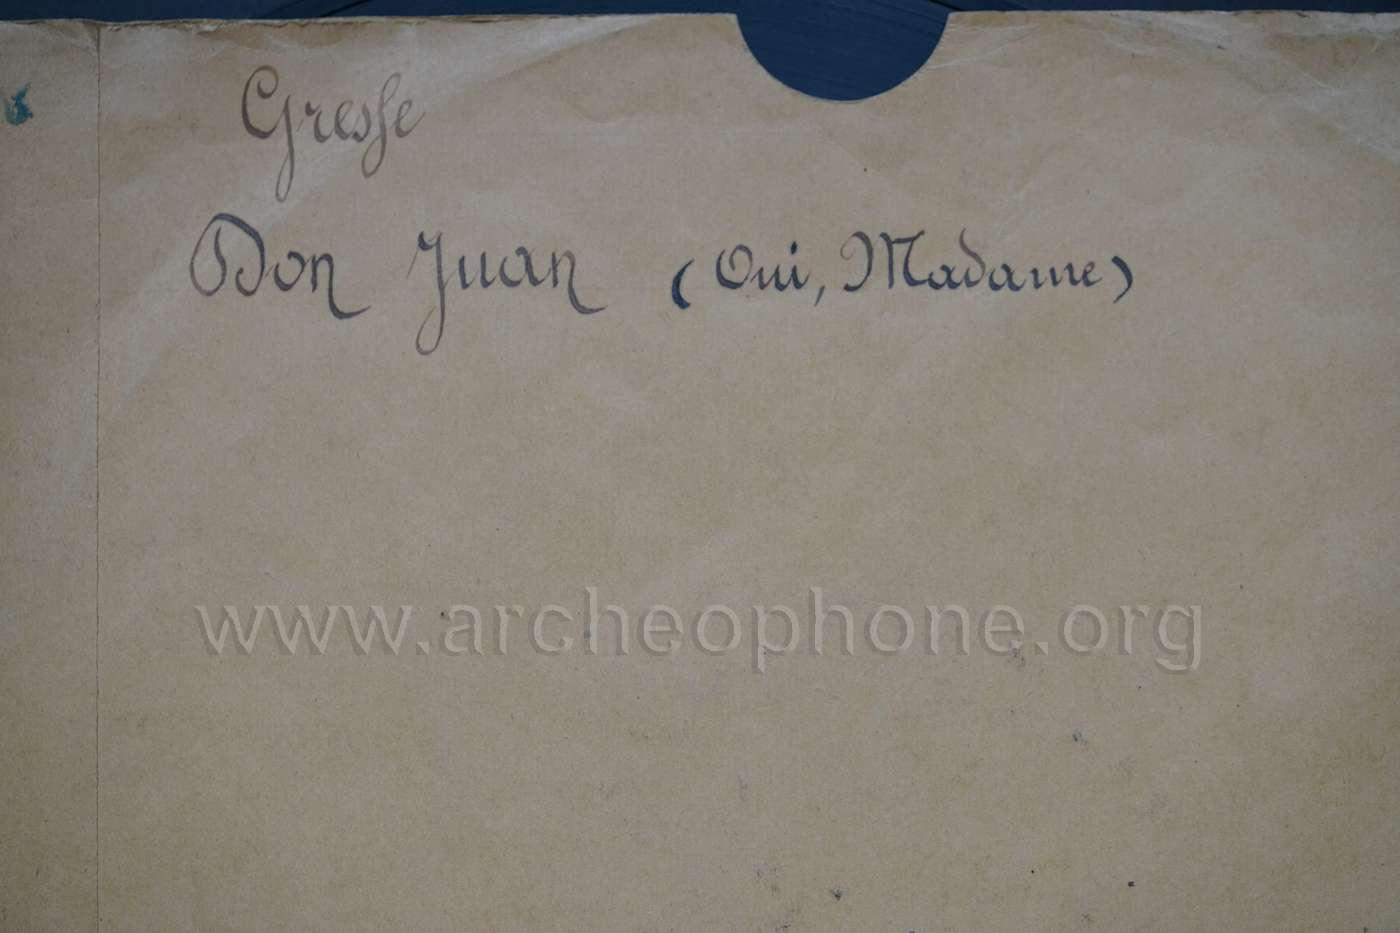 Gresse
Don Juan (Oui, Madame)
www.archeophone.org